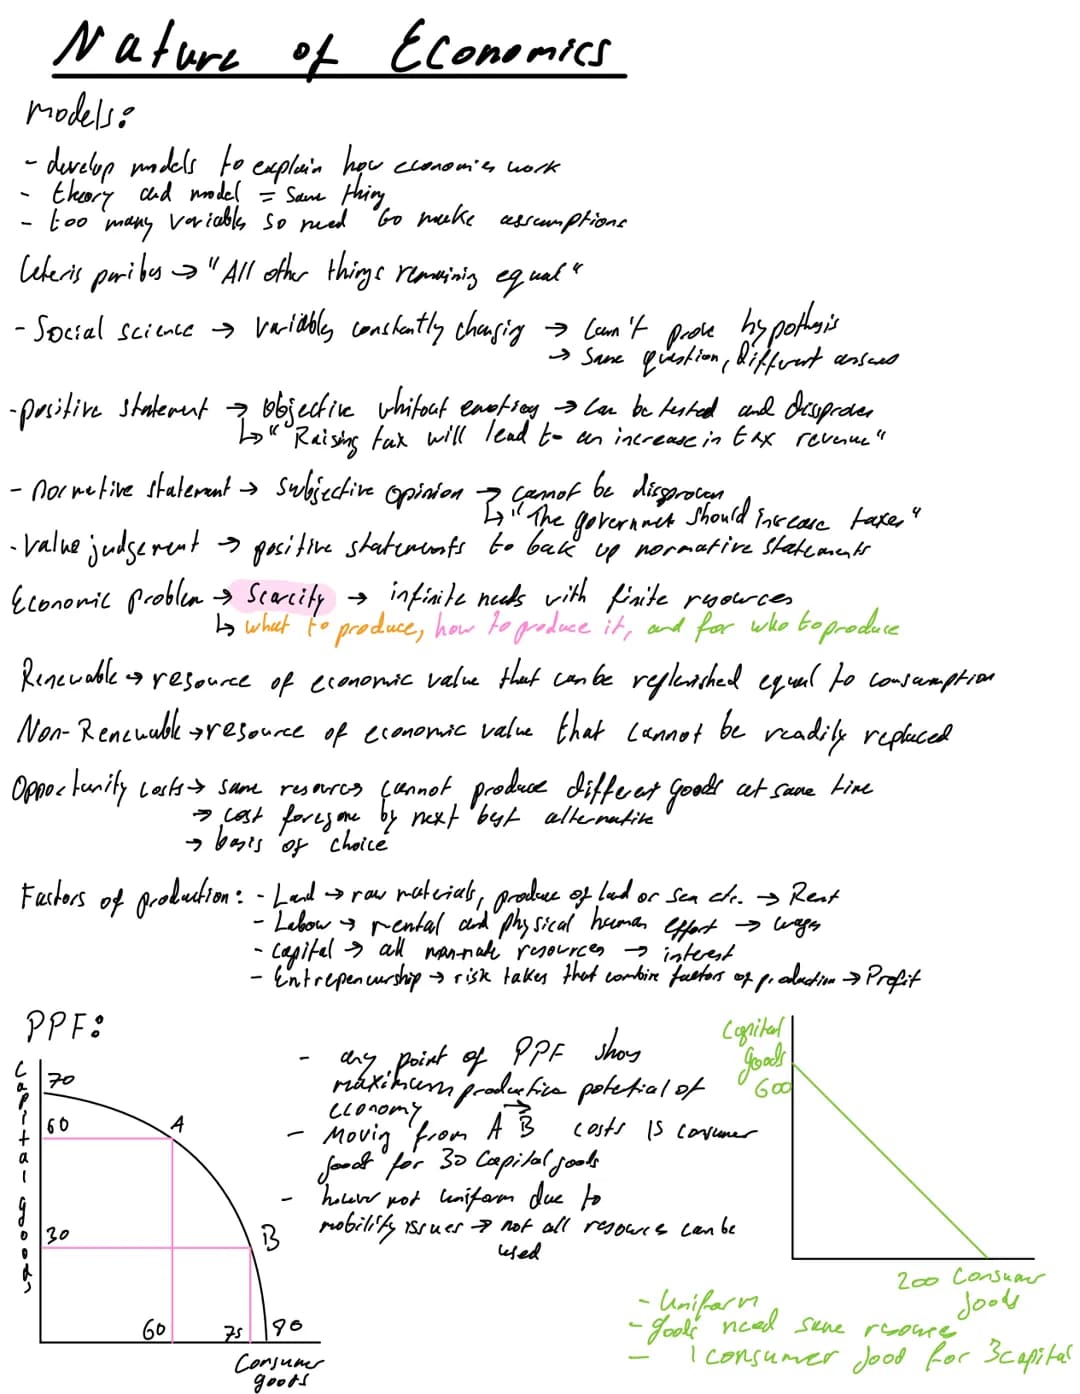 Nature of Economics
models:
- develop models to explain how economies work
- theory and model = same thing
- too many variables so need to make assumptions
Ceteris paribus → "All other things remaining equal"
- Social science → variables constantly changing → can't prove hypothesis
→ Same question, different answers
- positive statement → Objective without emotion → can be tested and disproven
↳ "Raising tax will lead to an increase in tax revenue"
- normative statement → subjective opinion → cannot be disproven
↳ "The government should increase taxes"
- value judgement → positive statements to back up normative statements
Economic problem → Scarcity → infinite needs with finite resources
↳ what to produce, how to produce it, and for who to produce
Renewable → resource of economic value that can be replenished equal to consumption
Non-Renewable → resource of economic value that cannot be readily replaced
Opportunity costs → same resources cannot produce different goods at same time
→ cost foregone by next best alternative
→ basis of choice
Factors of production: - Land → raw materials, produce of land or sea etc. → Rent
- Labour → mental and physical human effort → wages
- capital → all man-made resources → interest
- Entrepeneurship → risk takes that combine factors of production → Profit
PPF:
Capital goods
70
60
30
A
B
60
75
Consumer
goods
- any point of PPF shows
maximum productive potential of
economy
- Moving from A → B costs 15 consumer
goods for 30 Capital goods
- however not uniform due to
mobility issues → not all resources can be
used
Capital
goods
600
200 Consumer
goods
- Uniform
- goods need same resource
- 1 consumer good for 3 capital